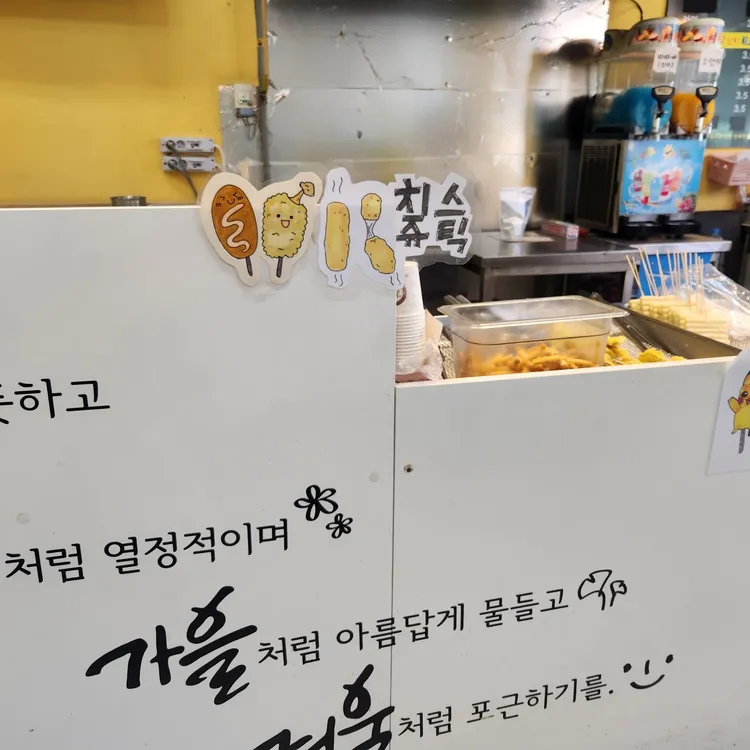 치즈
스틱
하고
처럼 열정적이며
가을처럼 아름답게 물들고
겨울처럼 포근하기를.
3.5
3.5